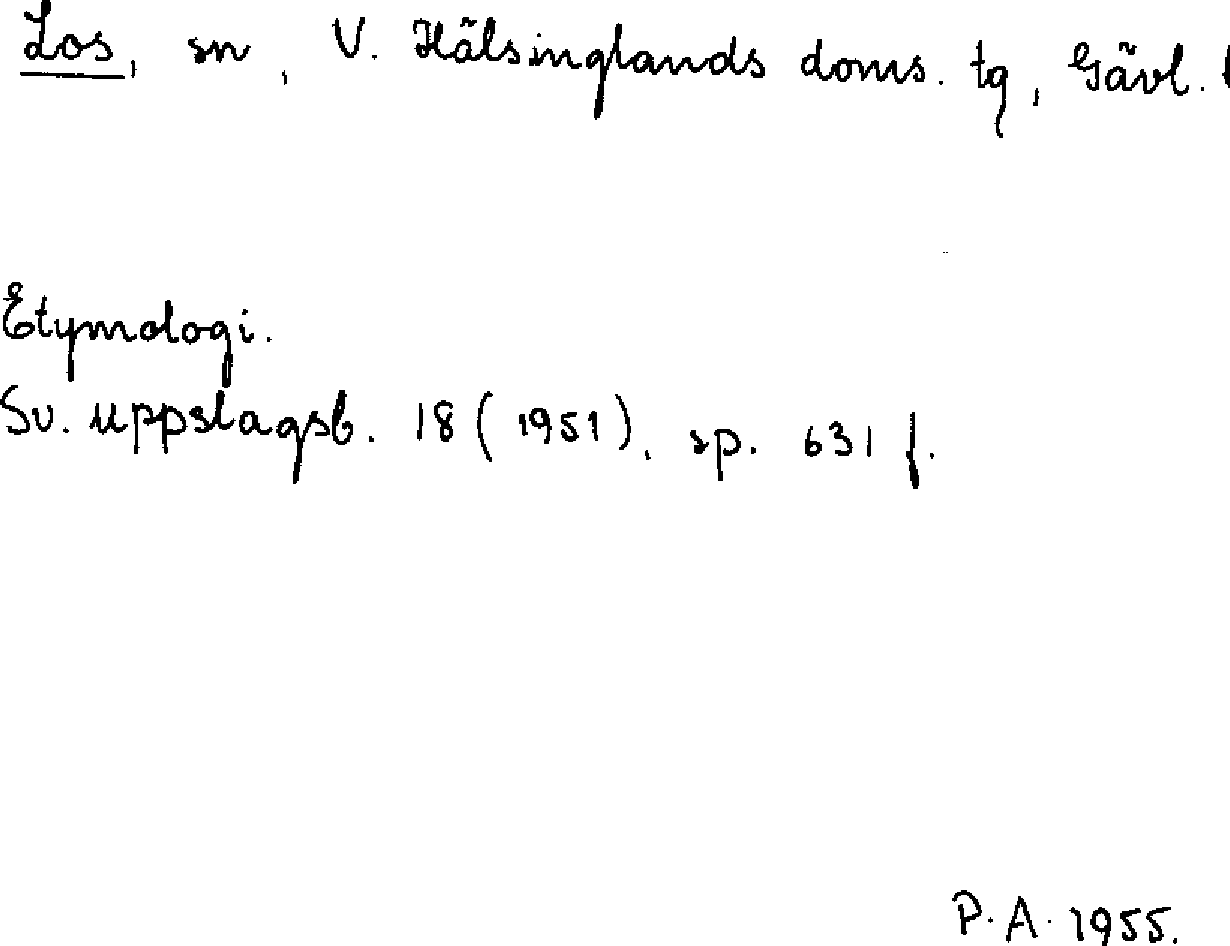 Los, sn, V. Hälsinglands doms. tg, Gävl.
Etymologi.
Sv. uppslagsb. 18 (1951), sp. 631 f.
P.A. 1955.